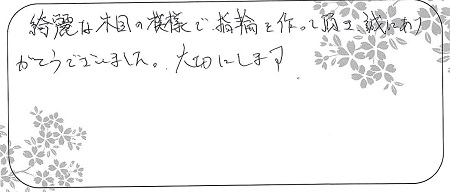 綺麗な木目の模様で指輪を作って頂き、誠にあり
がとうございました。大切にします